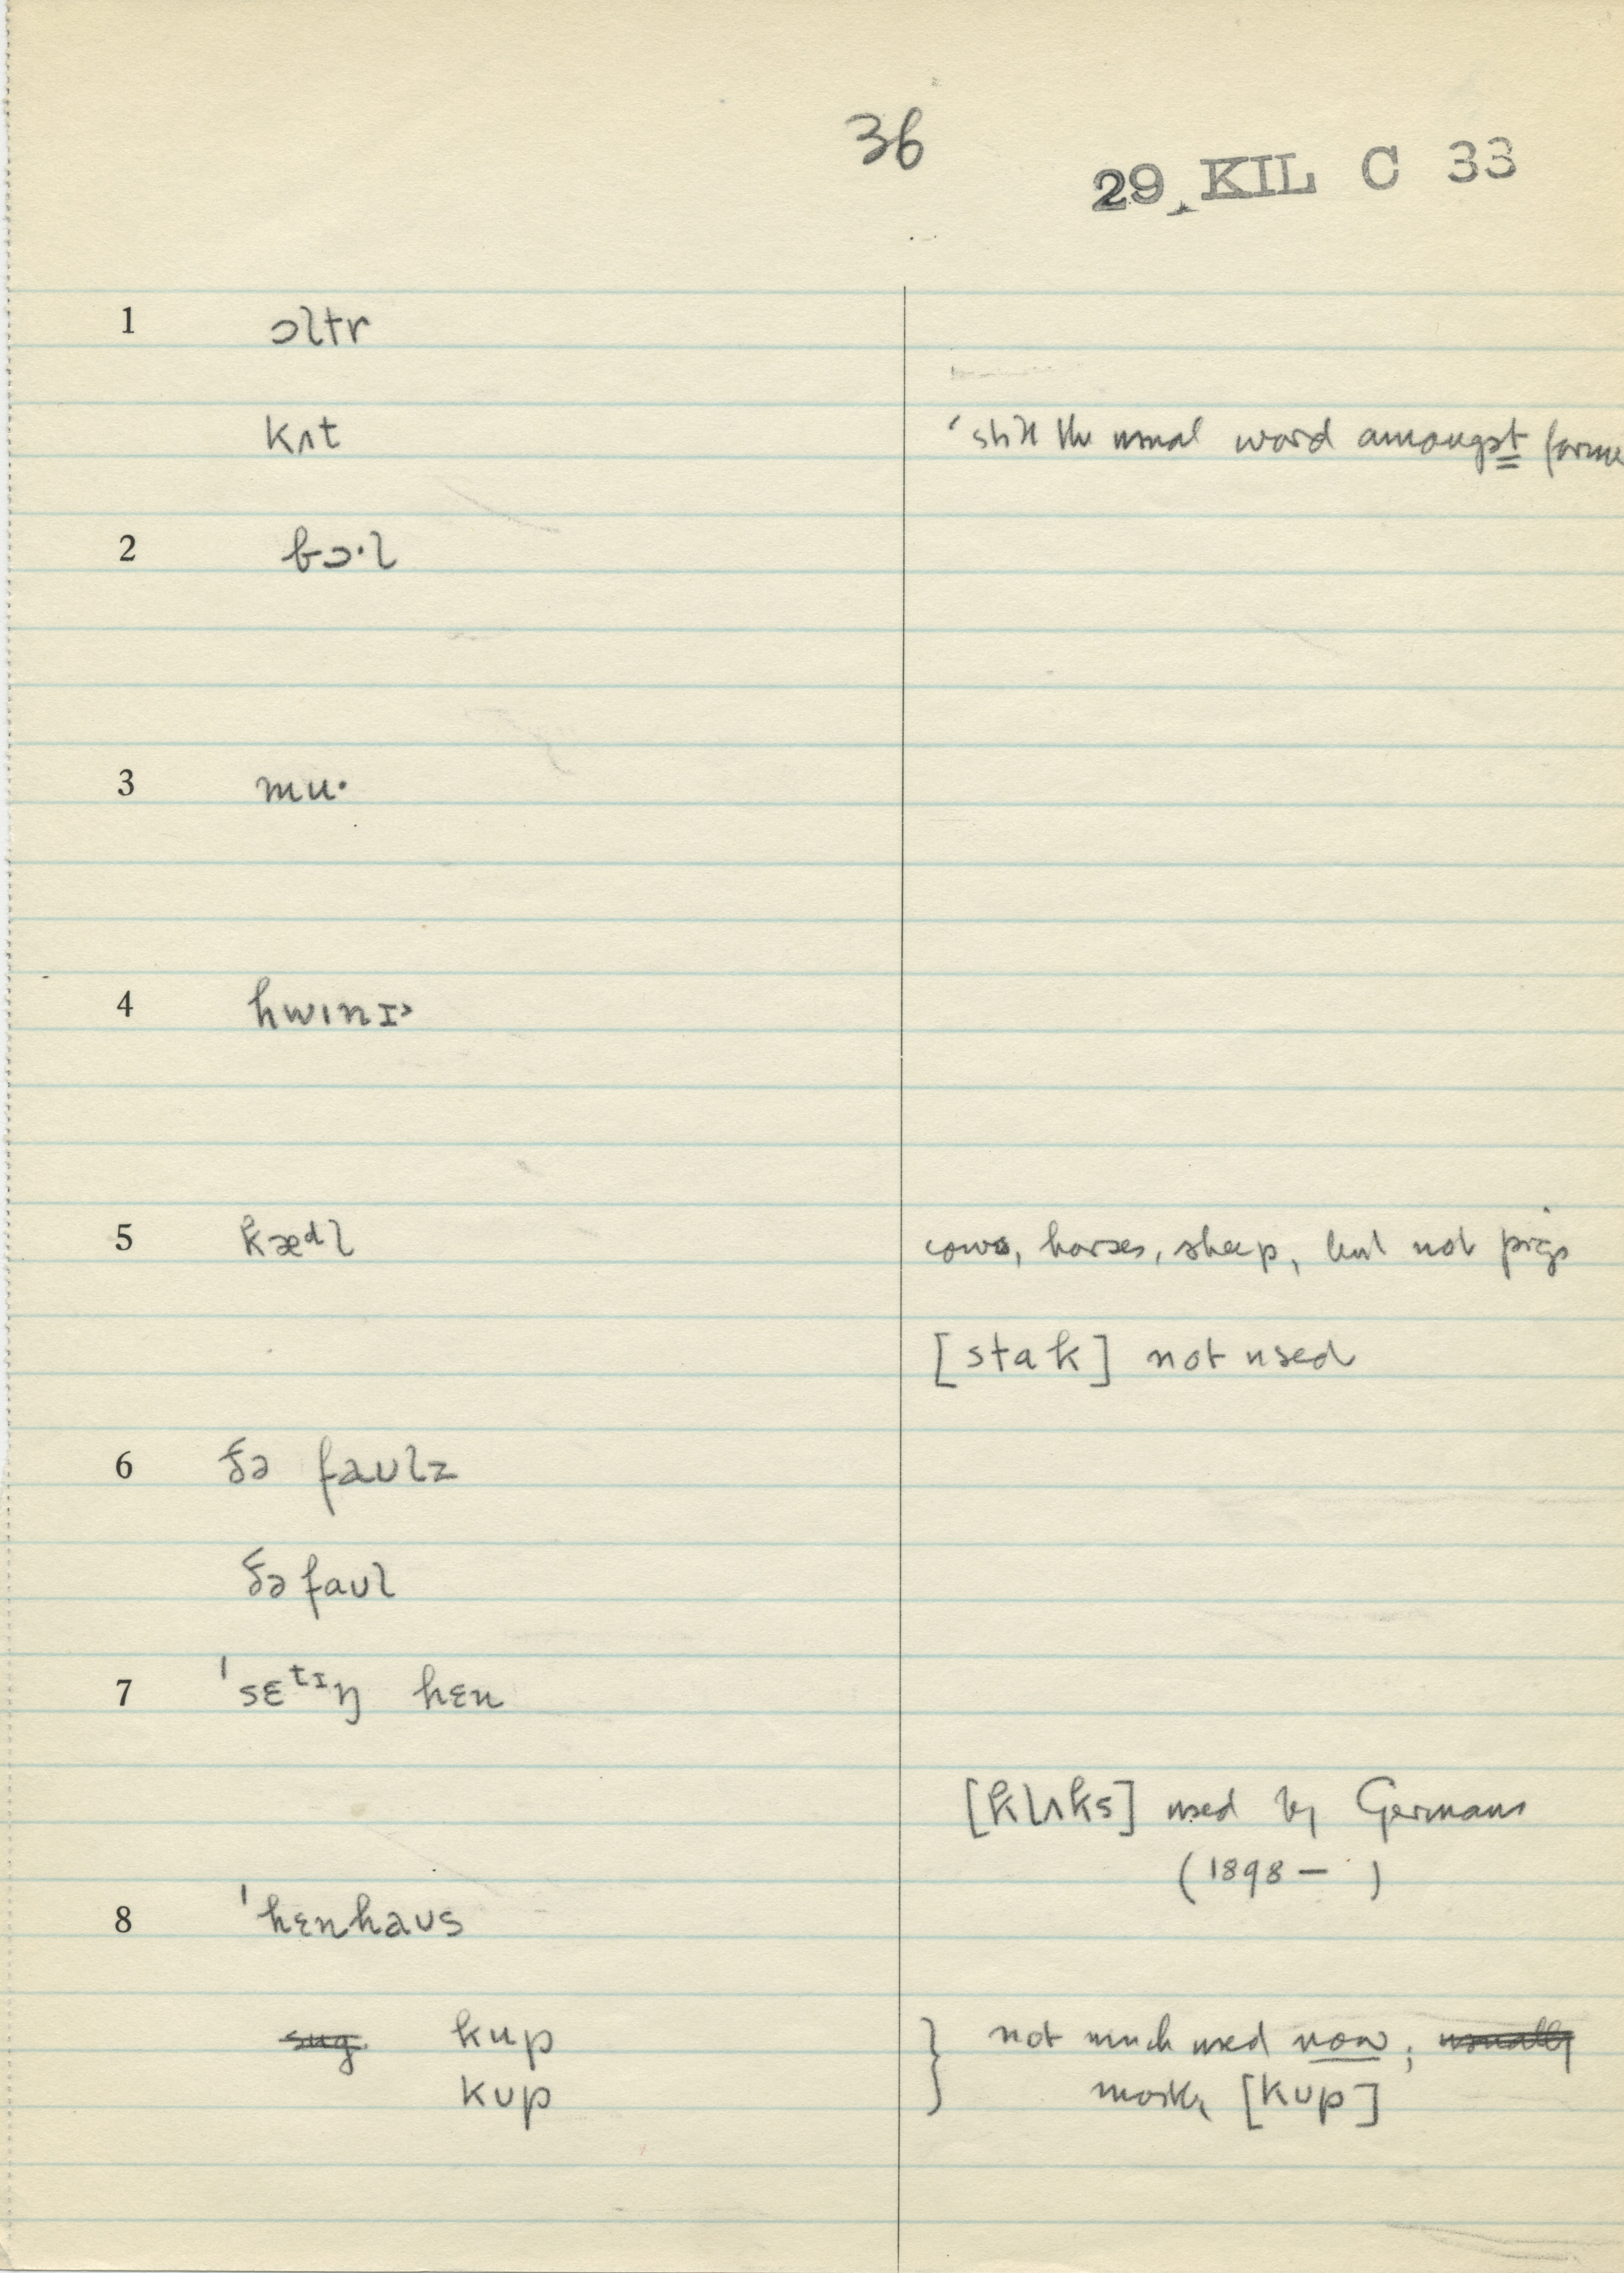 36
29 KIL C 33
1 ɔltr
kʌt 'still the usual word amongst
2 bɔ·l
3 mu·
4 hwɪnɪ˃
5 kæᵈl cows, horses, sheep, but not pigs
[stak] not used
6 ðə faʊlz
ðə faʊl
7 ˈsɛᵗᶦŋ hɛn
[klʌks] used by Germans
(1898 – )
8 ˈhɛnhaʊs
sug. kup } not much used now; usually
kʊp mostly [kʊp]